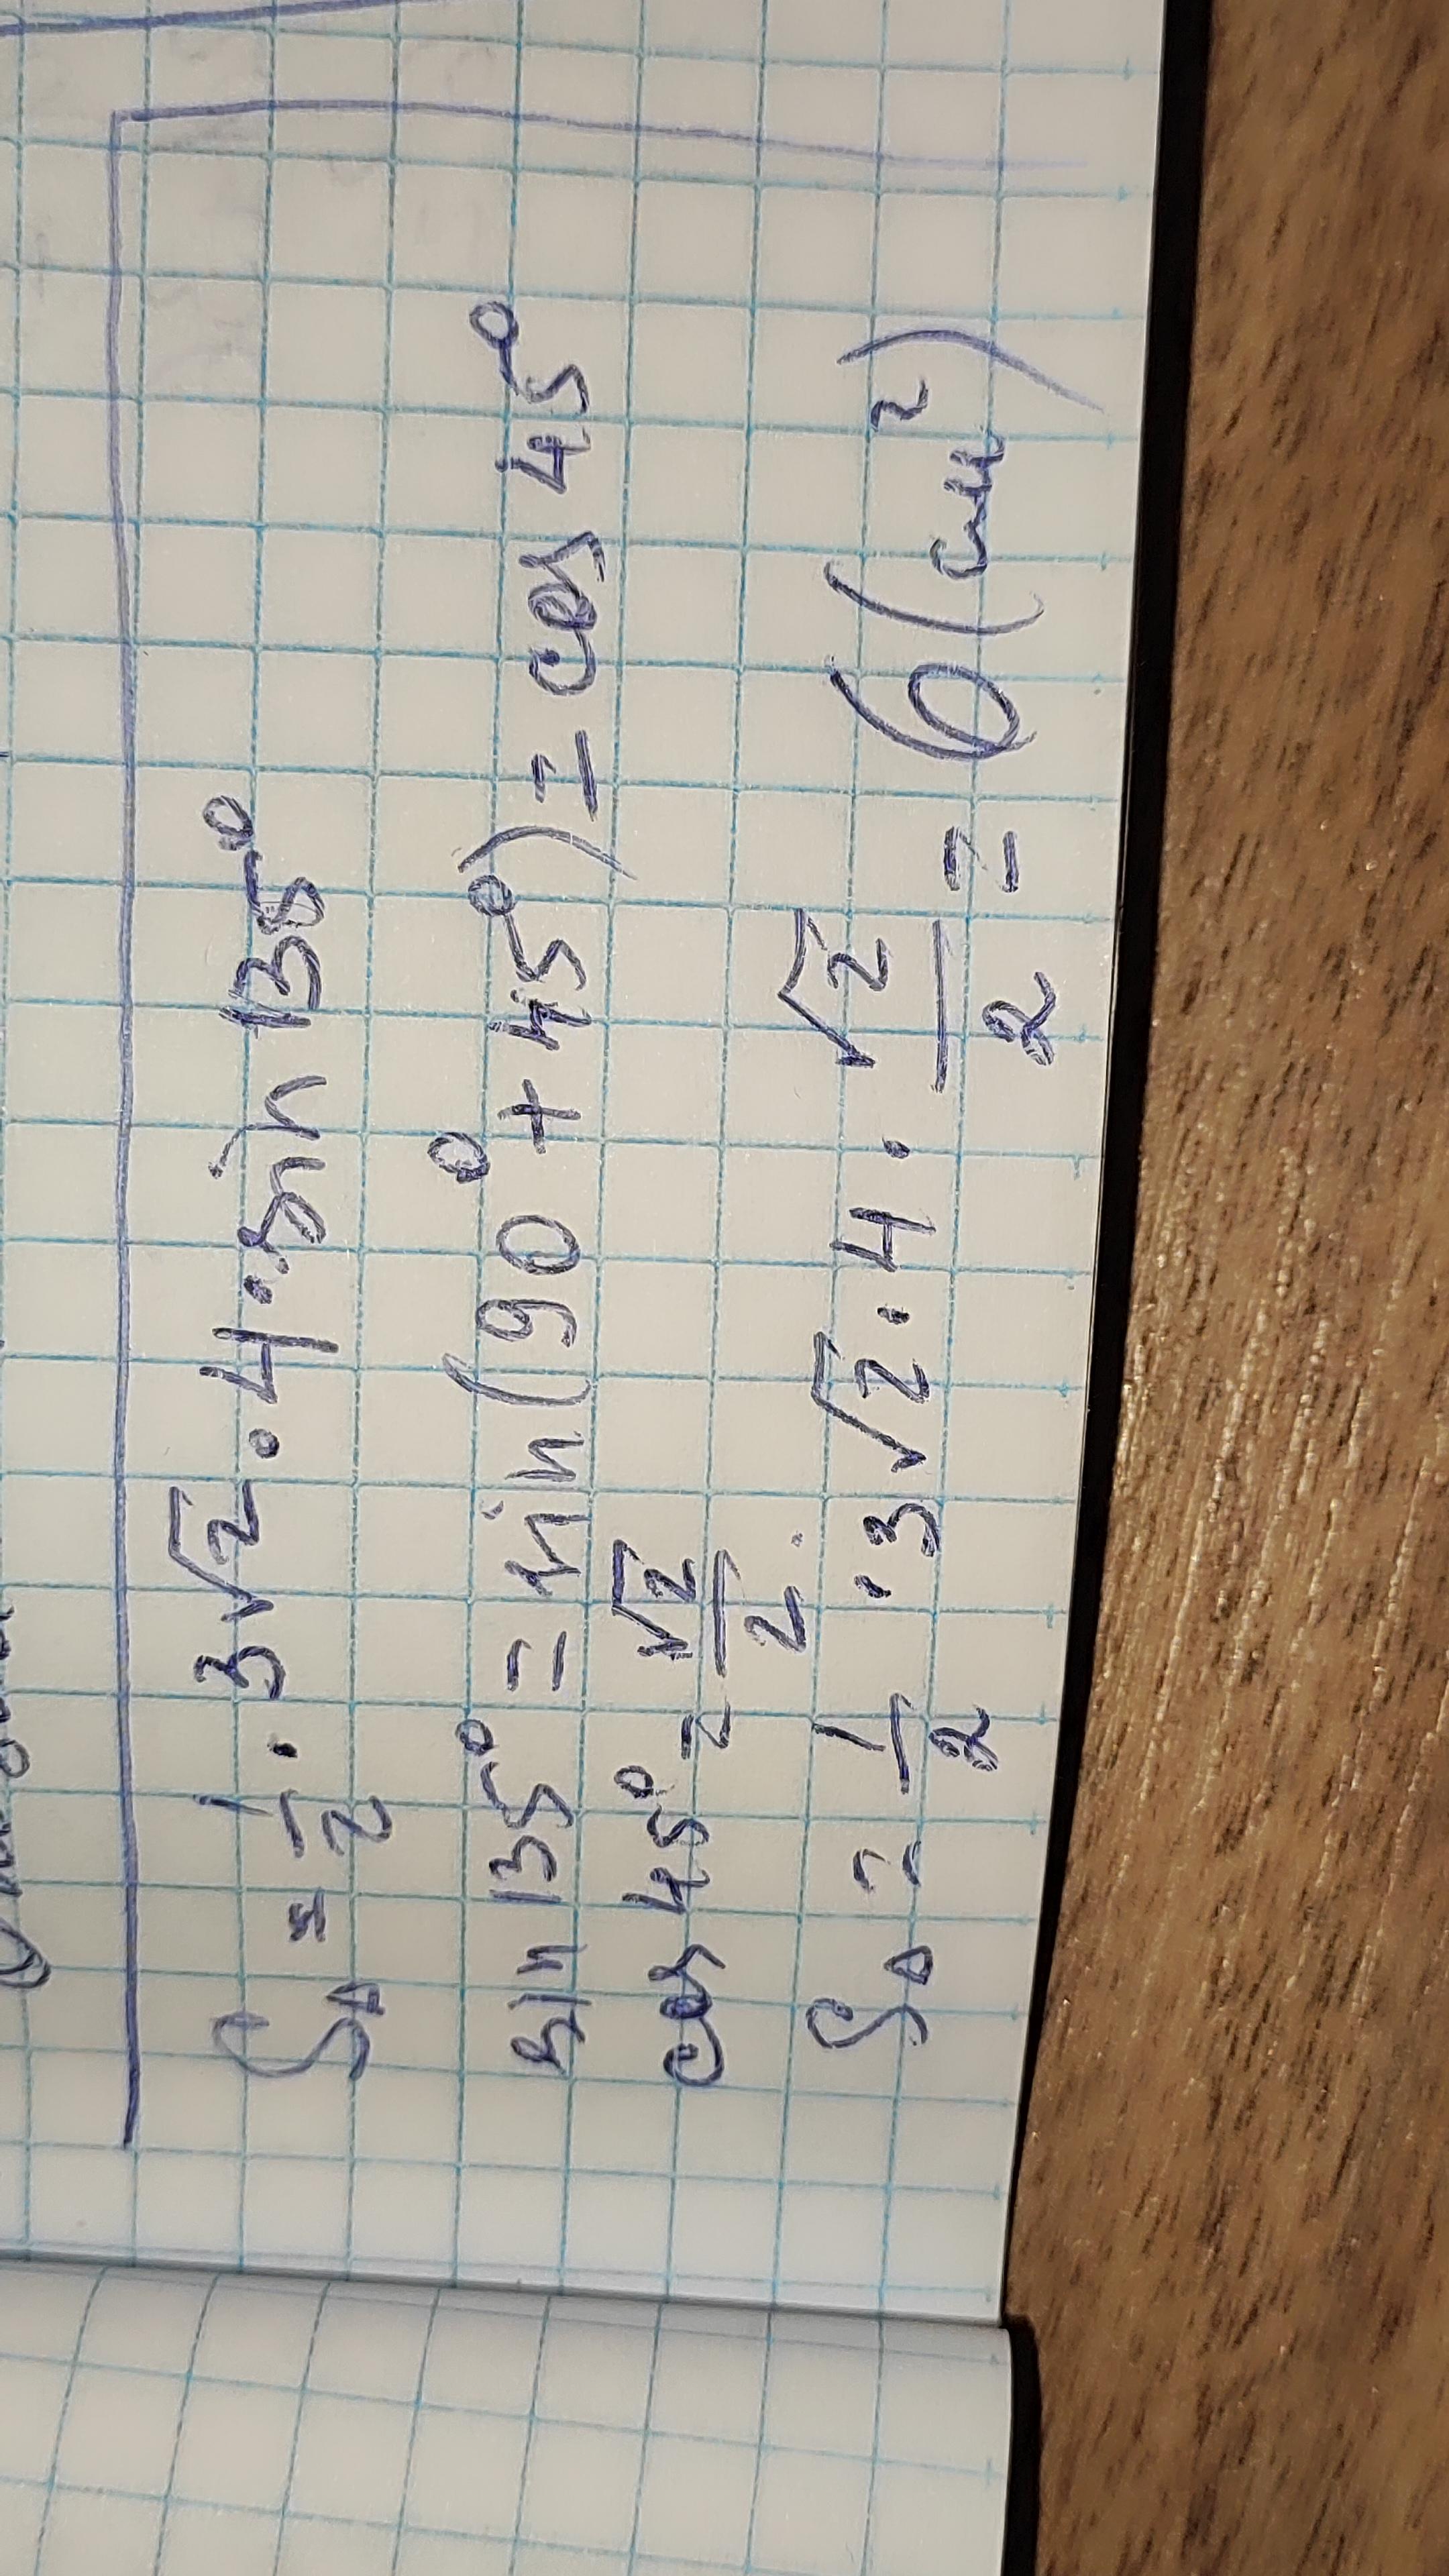 S△ = 1/2 · 3√2 · 4 · sin 135°
sin 135° = sin (90° + 45°) = cos 45°
cos 45° = √2/2
S△ = 1/2 · 3√2 · 4 · √2/2 = 6 (см²)